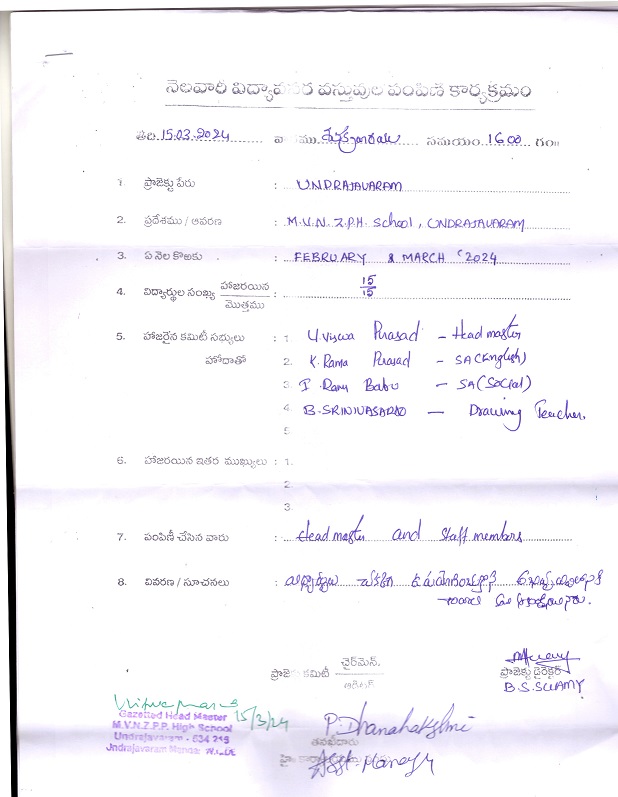 నెలవారీ విద్యావసర వస్తువుల పంపిణీ కార్యక్రమం
తేది. 15.03.2024 సమయం. 1600 గం॥
1. ప్రాజెక్టు పేరు : UNDRAJAVARAM
2. ప్రదేశము / ఆవరణ : M.V.N.Z.P.H. School, UNDRAJAVARAM
3. ఏ నెల కొఱకు : FEBRUARY & MARCH '2024
4. విద్యార్థుల సంఖ్య హాజరయిన / మొత్తము : 15/15
5. హాజరైన కమిటీ సభ్యులు : 1. Prasad - Head master
హోదాతో 2. K. Rama Prasad - SA (English)
3. I. Ram Babu - SA (Social)
4. B. SRINIVASARAO - Drawing Teacher.
5.
6. హాజరయిన ఇతర ముఖ్యులు : 1.
2.
3.
7. పంపిణీ చేసిన వారు : Head master and Staff members
8. వివరణ / సూచనలు :
ప్రాజెక్టు కమిటీ ఛైర్మెన్.
ప్రాజెక్టు డైరెక్టర్
B.S. SWAMY
15/3/24
Gazetted Head Master
M.V.N.Z.P.P. High School
Undrajavaram - 534 216
Undrajavaram Mandal W.G.Dt
P. Dhanalakshmi
Asst. Manager